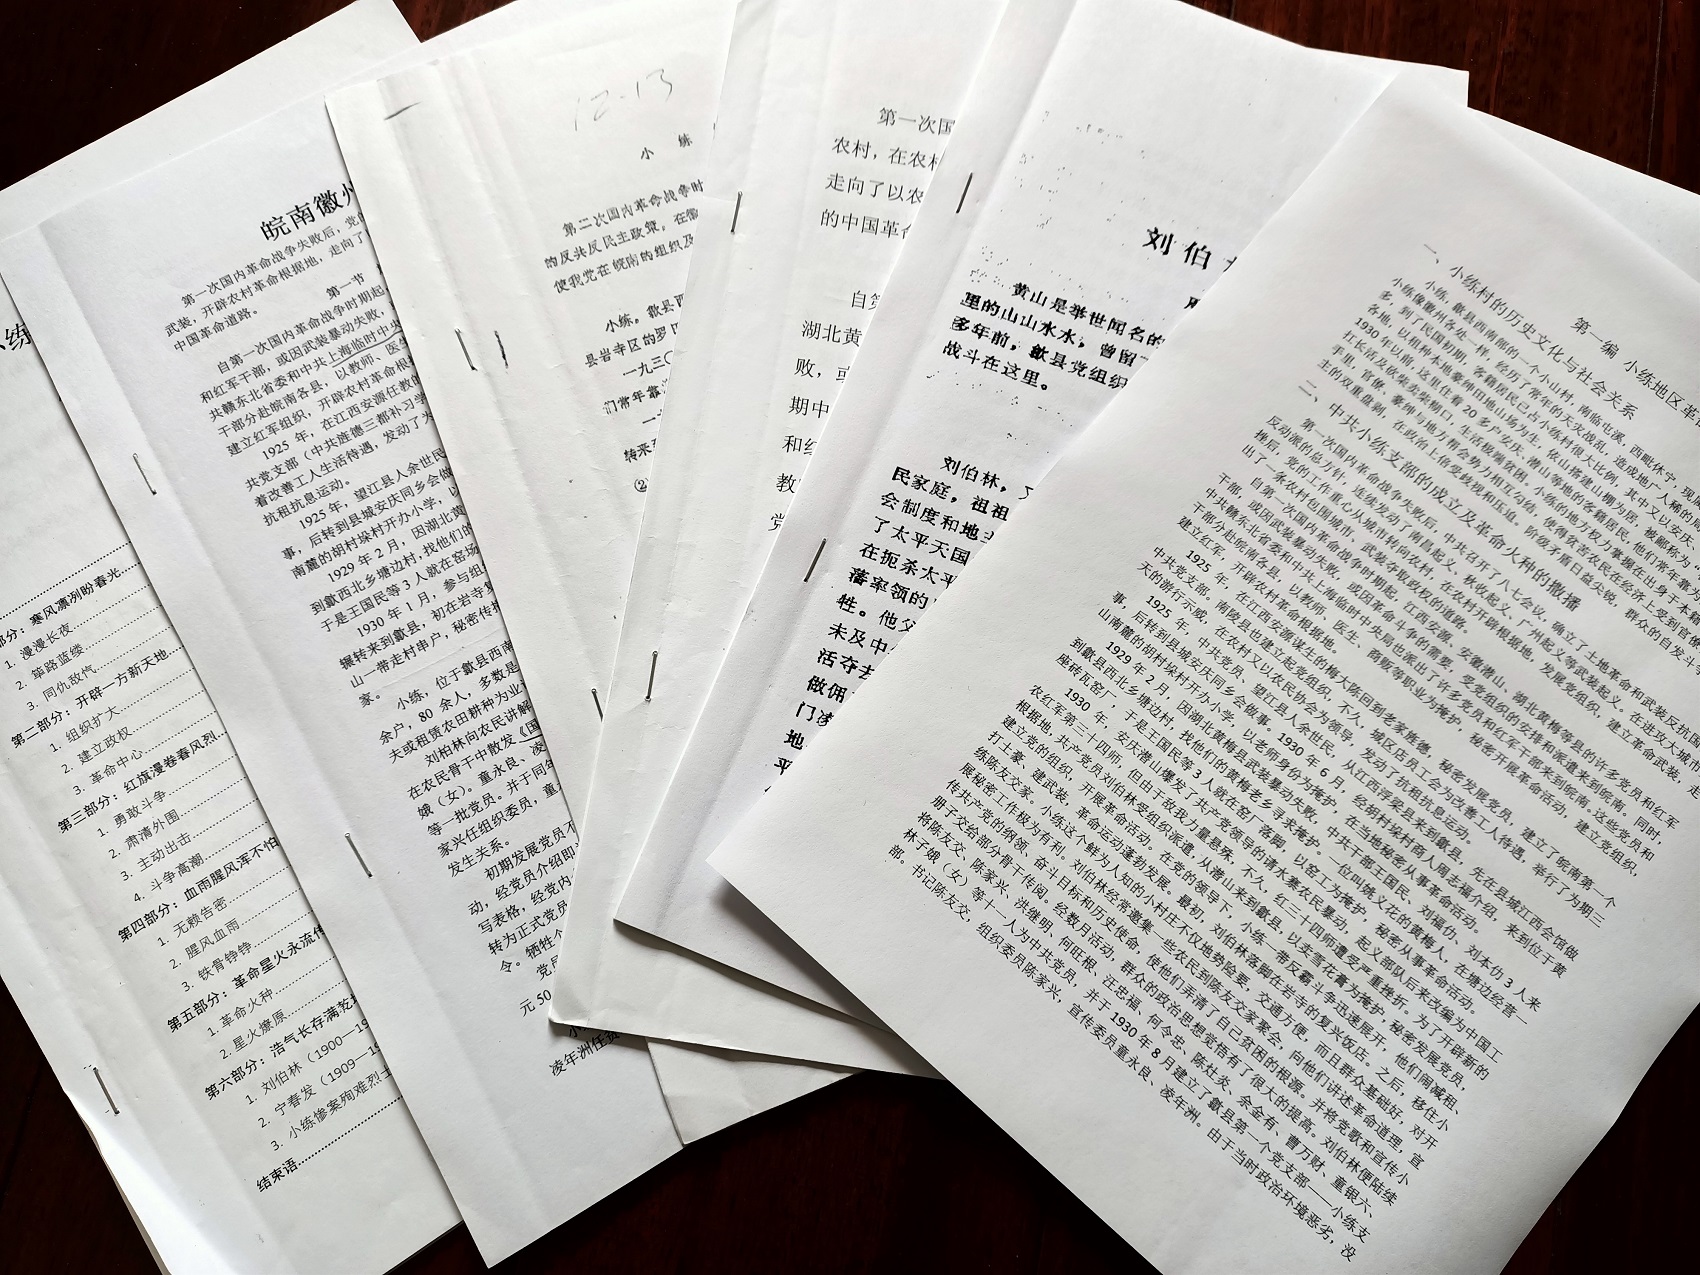 小练
部分：寒风凛冽盼春光
1. 漫漫长夜
2. 筚路蓝缕
3. 同仇敌忾
第二部分：开辟一方新天地
1. 组织扩大
2. 建立政权
3. 革命中心
第三部分：红旗漫卷春风烈
1. 勇敢斗争
2. 肃清外围
3. 主动出击
4. 斗争高潮
第四部分：血雨腥风浑不怕
1. 无赖告密
2. 腥风血雨
3. 铁骨铮铮
第五部分：革命星火永流传
1. 革命火种
2. 星火燎原
第六部分：浩气长存满乾
1. 刘伯林（1900—19
2. 宁春发（1909—19
3. 小练惨案殉难烈士
结束语
皖南徽州
第一次国内革命战争失败后，党
武装，开辟农村革命根据地，走向了
中国革命道路。
第一节
自第一次国内革命战争时期起
和红军干部，或因武装暴动失败，
共赣东北省委和中共上海临时中央
干部分赴皖南各县，以教师、医生
建立红军组织，开辟农村革命根据
1925 年，在江西安源任教
共党支部（中共旌德三都补习学
着改善工人生活待遇，发动了为
抗租抗息运动。
1925 年，望江县人余世民
事，后转到县城安庆同乡会做
南麓的胡村垛村开办小学，以
1929 年 2 月，因湖北黄
到歙西北乡塘边村，找他们的
于是王国民等 3 人就在窑场
1930 年 1 月，参与组
辗转来到歙县，初在岩寺
山一带走村串户，秘密传播
家。
小练，位于歙县西南
余户，80 余人，多数是
夫或租赁农田耕种为业
刘伯林向农民讲解
在农民骨干中散发《国
娥（女）。童永良、凌
等一批党员。并于同年
家兴任组织委员，童
发生关系。
初期发展党员不
动，经党员介绍即
写表格，经党内
转为正式党员
令。牺牲个
党员
元 50
凌年洲任
12-13
小 练
第二次国内革命战争时
的反共反民主政策。在徽
使我党在皖南的组织及
小练。歙县西
县岩寺区的罗田
一九三〇
们常年靠
转来到
②
第一次国
农村，在农村
走向了以农
的中国革命
自第
湖北黄
败，或
期中
和红
教
党
刘 伯
黄山是举世闻名的
里的山山水水，曾留
多年前，歙县党组织
战斗在这里。
刘伯林，
民家庭，祖祖
会制度和地主
了太平天国
在扼杀太平
藩率领的
牲。他父
未及中
活夺去
做佣
门凌
地
平
第一编 小练地区革
一、小练村的历史文化与社会关系
小练，歙县西南部的一个小山村，南临屯溪，西毗休宁，现属
小练像徽州各处一样，经历了常年的天灾战乱，造成地广人稀的局
多，到了民国初期，客籍居民已占小练村很大比例，其中又以安庆、
各地，以租种本地豪绅田地山场为生，依山搭建山棚为居，被鄙称为“
1930 年以前，这里住着 20 多户安庆、潜山等地的客籍居民，他们常年靠为
扛长活及砍柴卖柴糊口，生活极端贫困。小练的地方权力掌握在出身于本籍
手里，官僚、豪绅与地方帮会势力相互勾结，使得贫苦农民在经济上受到官僚
主的双重盘剥，在政治上倍受歧视和压迫。阶级矛盾日益尖锐，群众的自发斗争
二、中共小练支部的成立及革命火种的撒播
第一次国内革命战争失败后，中共召开了八七会议，确立了土地革命和武装反抗国
反动派的总方针，连续发动了南昌起义、秋收起义、广州起义等武装起义。在进攻大城市
挫后，党的工作重心从城市转向农村，在农村开辟根据地，发展党组织，建立革命武装，走
出了一条农村包围城市，武装夺取政权的道路。
自第一次国内革命战争时期起，江西安源、安徽潜山、湖北黄梅等县的许多党员和红军
干部，或因武装暴动失败，或因革命斗争的需要，受党组织的安排和派遣来到皖南。同时，
中共赣东北省委和中共上海临时中央局也派出了许多党员和红军干部来到皖南。这些党员和
干部分赴皖南各县，以教师、医生、商贩等职业为掩护，秘密开展革命活动，建立党组织，
建立红军，开辟农村革命根据地。
1925 年，在江西安源谋生的梅大陈回到老家旌德，秘密发展党员，建立了皖南第一个
中共党支部。南陵县也建立起党组织，不久，城区店员工会为改善工人待遇，举行了为期三
天的游行示威，在农村又以农民协会为领导，发动了抗租抗息运动。
1925 年，中共党员、望江县人余世民，从江西浮梁县来到歙县，先在县城江西会馆做
事，后转到县城安庆同乡会做事。1930 年 6 月，经胡村垛村商人周志福介绍，来到位于黄
山南麓的胡村垛村开办小学，以老师身份为掩护，在当地秘密从事革命活动。
1929 年 2 月，因湖北黄梅县武装暴动失败，中共干部王国民、刘福仂、刘本仂 3 人来
到歙县西北乡塘边村，找他们的黄梅老乡寻求掩护。一位叫姚义花的黄梅人，在塘边经营一
座砖瓦窑厂，于是王国民等 3 人就在窑厂落脚，以窑工为掩护，秘密从事革命活动。
1930 年，安庆潜山爆发了共产党领导的请水寨农民暴动，起义部队后来改编为中国工
农红军第三十四师，但由于敌我力量悬殊，不久，红三十四师遭受严重挫折。为了开辟新的
根据地，共产党员刘伯林受组织派遣，从潜山来到歙县，以卖雪花膏为掩护，秘密发展党员，
建立党的组织，开展革命活动。在党的领导下，小练一带反霸斗争迅速展开，他们闹减租、
打土豪、建武装，革命运动蓬勃发展。最初，刘伯林落脚在岩寺的复兴饭店。之后，移住小
练陈友交家。小练这个鲜为人知的小村庄不仅地势险要，交通方便，而且群众基础好，对开
展秘密工作极为有利。刘伯林经常邀集一些农民到陈友交家聚会，向他们讲述革命道理，宣
传共产党的纲领、奋斗目标和历史使命，使他们弄清了自己贫困的根源。并将党歌和宣传小
册子交给部分骨干传阅。经数月活动，群众的政治思想觉悟有了很大的提高。刘伯林便陆续
将陈友交、陈家兴、洪继明、何旺根、汪忠福、何令忠、陈灶炎、余金有、曹万财、童银六、
林子娥（女）等十一人为中共党员，并于 1930 年 8 月建立了歙县第一个党支部——小练支
部。书记陈友交，组织委员陈家兴，宣传委员童永良、凌年洲。由于当时政治环境恶劣，没